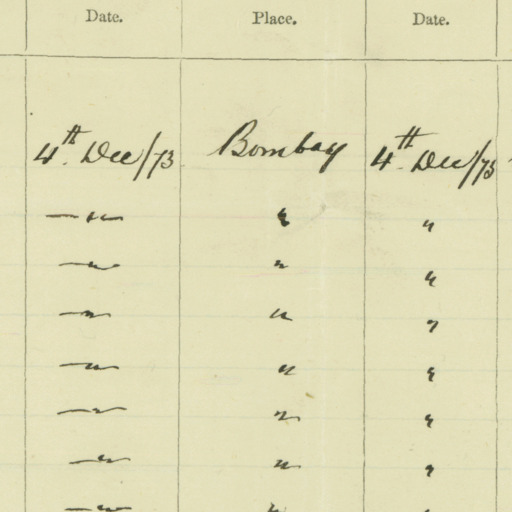 Date. Place. Date.
4th. Dec/73 Bombay 4th. Dec/73
— " — " "
— " — " "
— " — " "
— " — " "
— " — " "
— " — " "
— " — " "